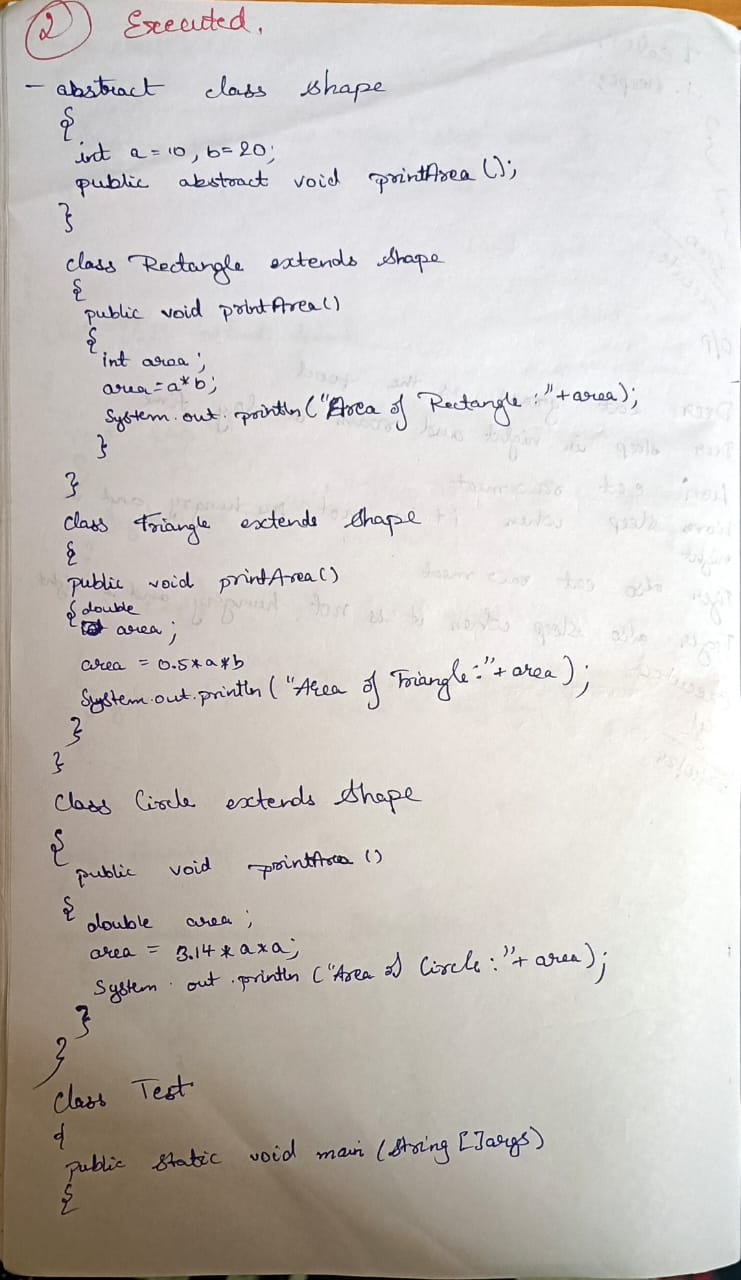 2 Executed.
- abstract class shape
{
int a=10, b=20;
public abstract void printArea();
}
class Rectangle extends shape
{
public void printArea()
{
int area;
area=a*b;
System.out.println("Area of Rectangle:"+area);
}
}
class Triangle extends shape
{
public void printArea()
{ double
area;
area = 0.5*a*b
System.out.println("Area of Triangle:"+area);
}
}
class Circle extends shape
{
public void printArea()
{ double area;
area = 3.14*a*a;
System.out.println("Area of Circle:"+area);
}
}
class Test
{
public static void main(String []args)
{